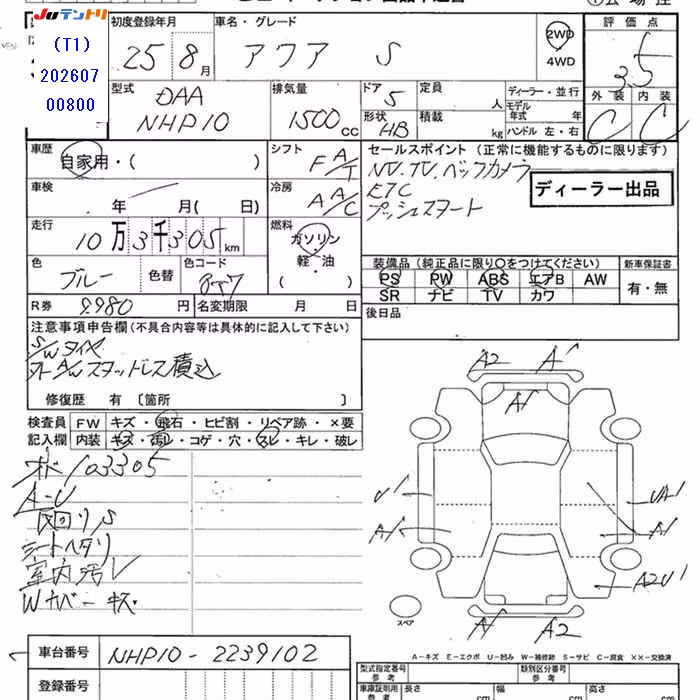 JUテントリ
(T1)
202607
00800
初度登録年月
25 8月
車名・グレード
アクア S
2WD
4WD
評価点
3.5
外装 内装
C C
型式
DAA
NHP10
排気量
1500cc
ドア
5
形状
HB
定員
人
積載
kg
ディーラー・並行
モデル年式 年
ハンドル 左・右
車歴
自家用・( )
シフト
F A/T
車検
年 月( 日)
冷房
A A/C
走行
10万3千305km
燃料
ガソリン・
軽・油
( )
色
ブルー
色替
色コード
8T7
R券 9,980円
名変期限 月 日
セールスポイント (正常に機能するものに限ります)
NV.TV.バックカメラ
ETC
プッシュスタート
ディーラー出品
装備品 (純正品に限り○をつけてください)
PS PW ABS エアB AW
SR ナビ TV カワ
新車保証書
有・無
後日品
注意事項申告欄(不具合内容等は具体的に記入して下さい)
S/Wタイヤ
外A/Wスタッドレス積込
修復歴 有 〔箇所 〕
検査員
記入欄
FW キズ・飛石・ヒビ割・リペア跡・×要
内装 キズ・汚レ・コゲ・穴・スレ・キレ・破レ
オド103305
A-U
シートヘタリ
室内汚レ
Wカバーキズ
A2 A1
A1
U1
A1
UA1
A1
A2U1
スペア
A1 A2
A-キズ E-エクボ U-凹み W-補修跡 S-サビ C-腐食 XX-交換済
車台番号
NHP10-2239102
登録番号
型式指定番号
参考
類別区分番号
参考
車庫証明用
参考
長さ
cm
幅
cm
高さ
cm